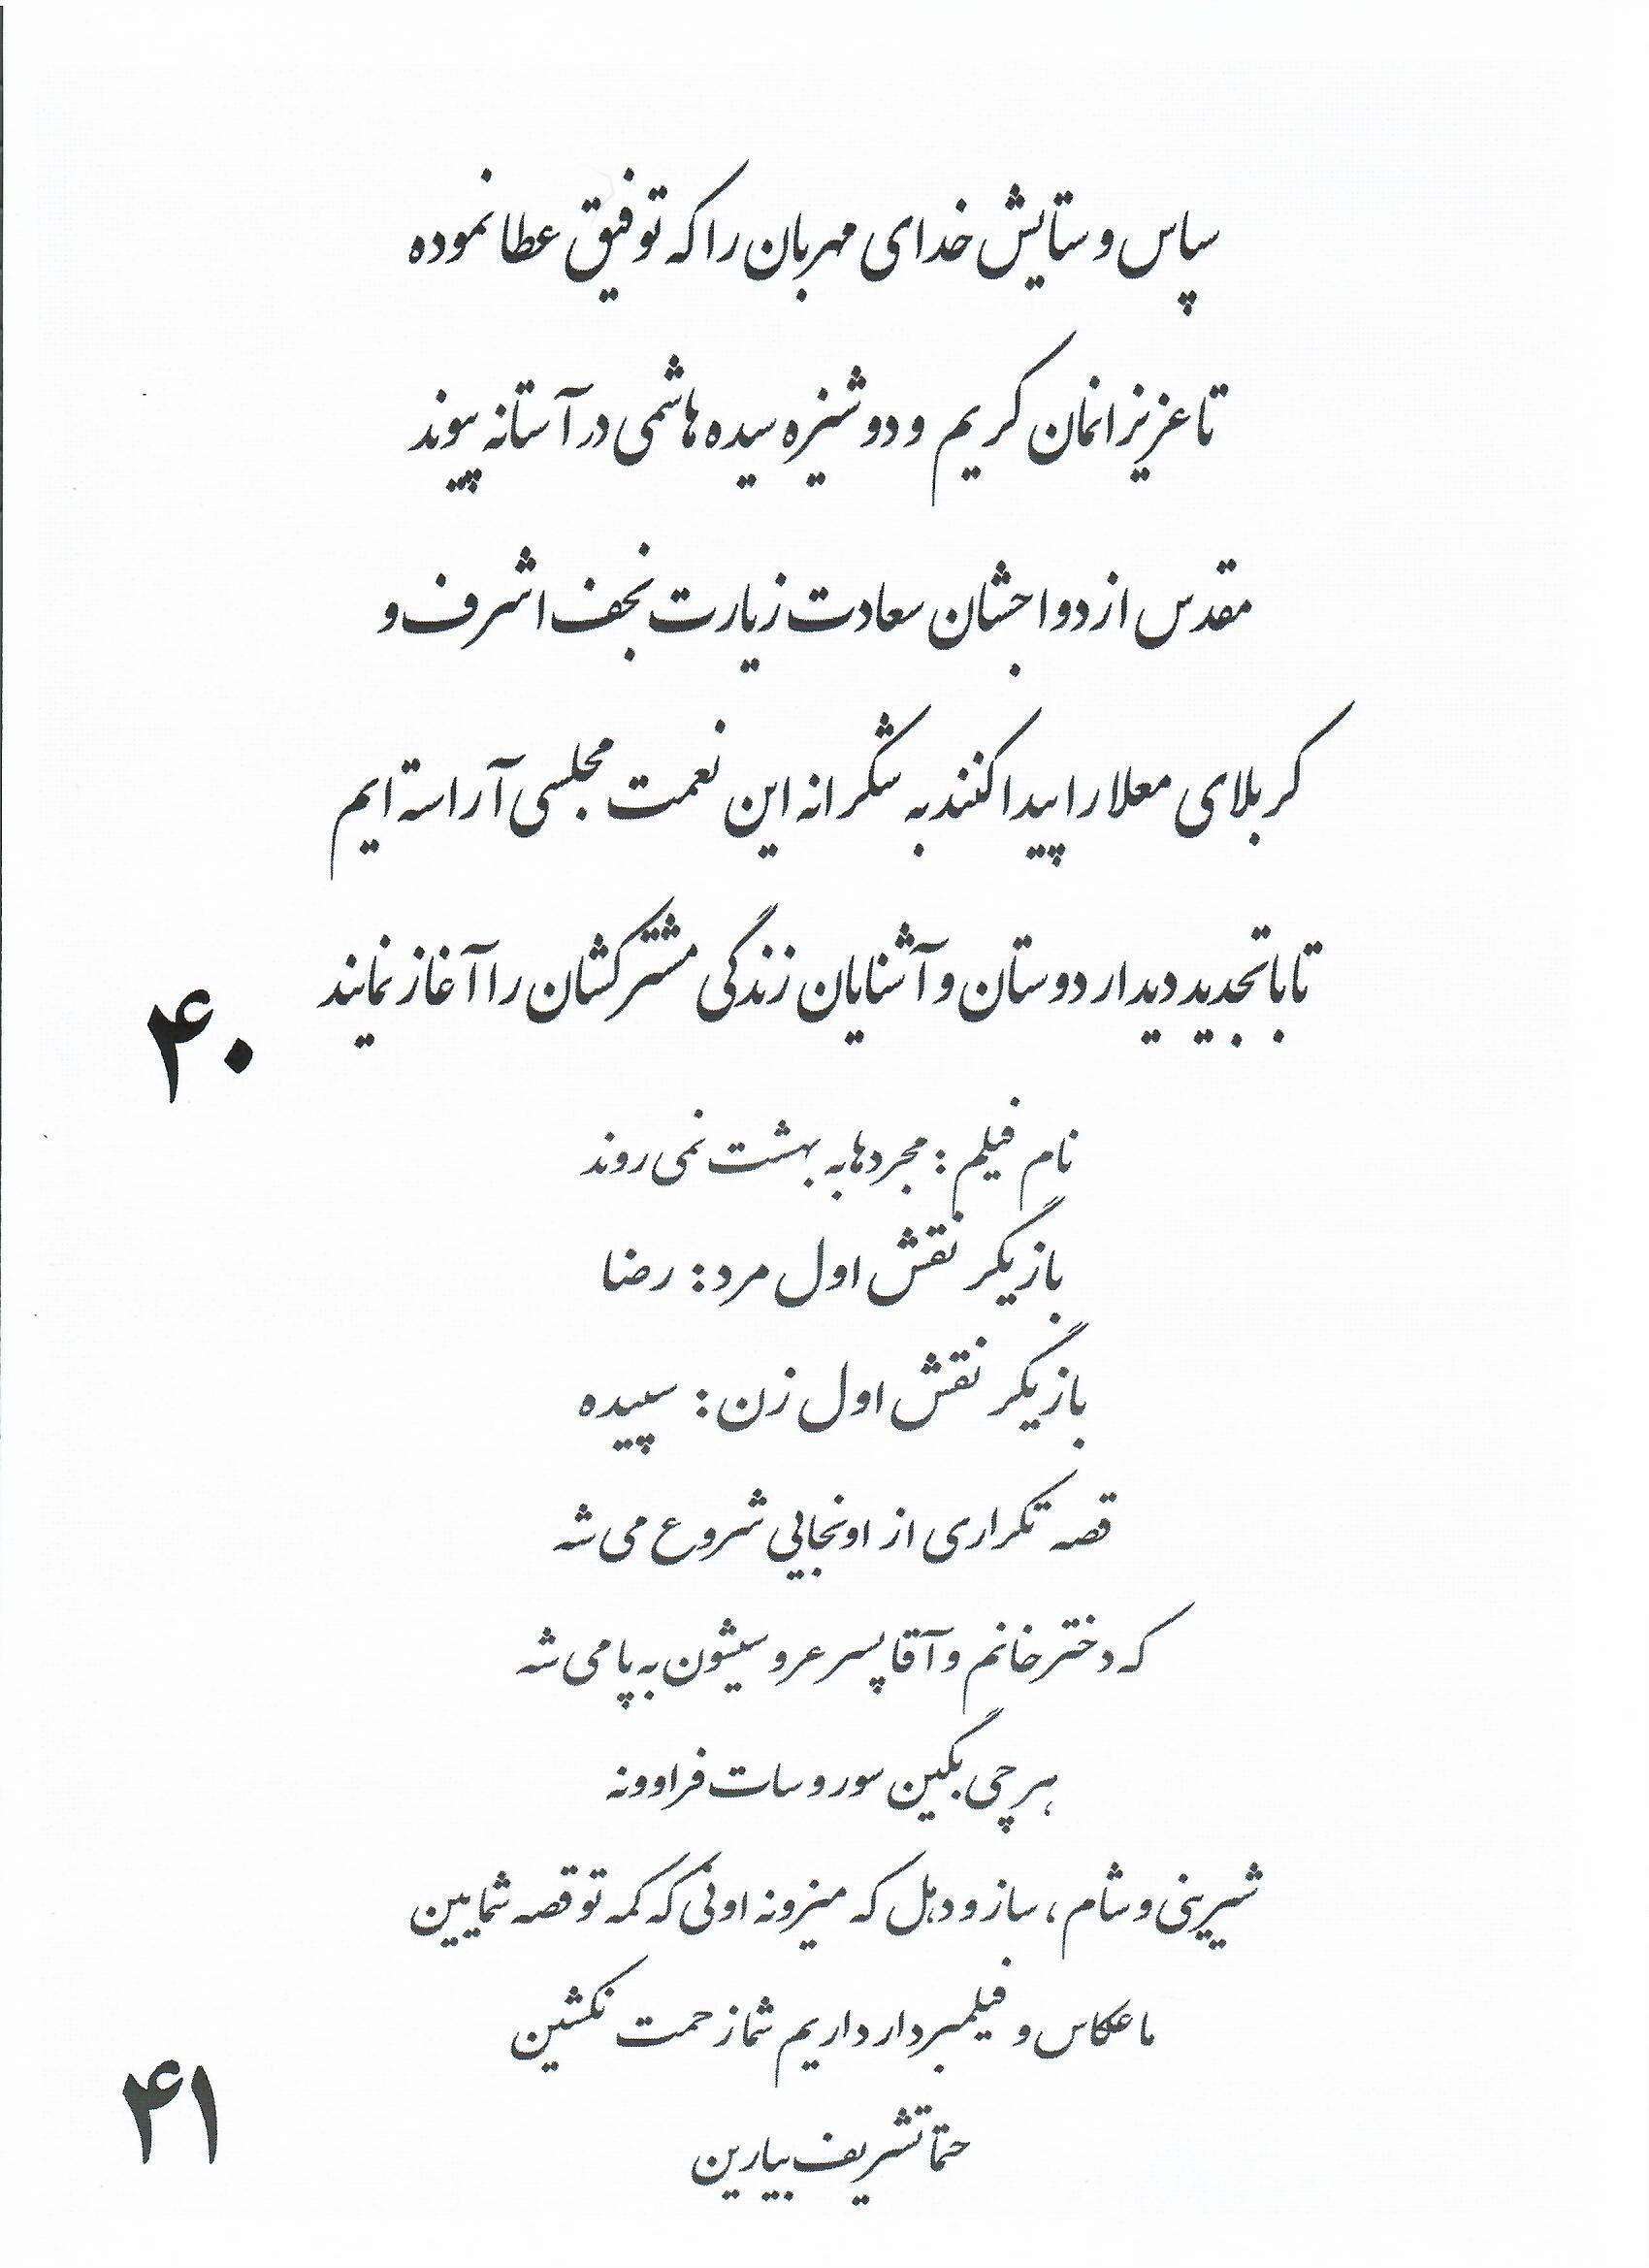 سپاس و ستایش خدای مهربان را که توفیق عطا نموده
تا عزیزانمان کریم و دوشیزه سیده هاشمی در آستانه پیوند
مقدس ازدواجشان سعادت زیارت نجف اشرف و
کربلای معلا را پیدا کنند به شکرانه این نعمت مجلسی آراسته ایم
تا با تجدید دیدار دوستان و آشنایان زندگی مشترکشان را آغاز نمایند
۴۰
نام فیلم : مجردها به بهشت نمی روند
بازیگر نقش اول مرد : رضا
بازیگر نقش اول زن : سپیده
قصه تکراری از اونجایی شروع می شه
که دختر خانم و آقا پسر عروسیشون به پا می شه
هر چی بگین سور و سات فراوونه
شیرینی و شام ، ساز و دهل که میزونه اونی که کمه تو قصه شمایین
ما عکاس و فیلمبردار داریم شما زحمت نکشین
حتما تشریف بیارین
۴۱